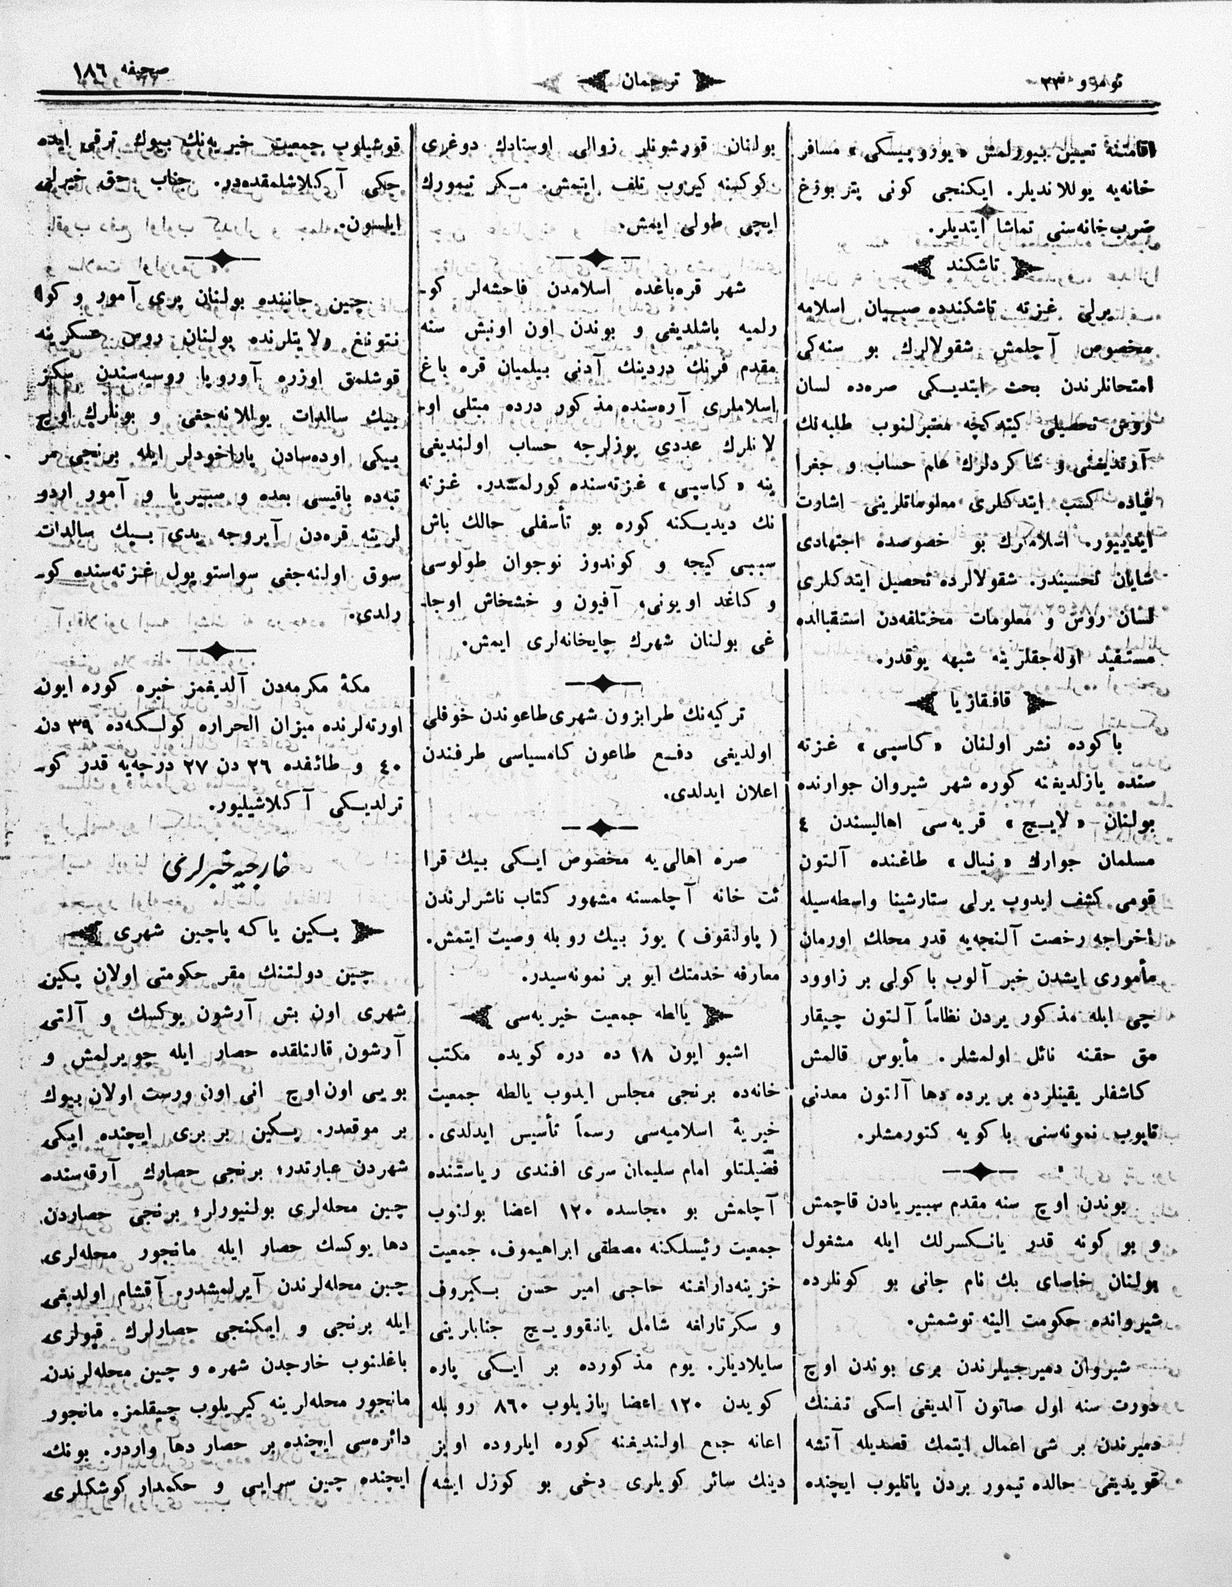 نومرو ۲۳
ترجمان
صحیفه ۱۸٦
اقامتنه تعیین بیورلمش «یوروپیسکی» مسافر
خانه‌یه یوللاندیلر. ایکنجی کونی پتربورغ
ضرب‌خانه‌سنی تماشا ایتدیلر.
تاشکند
یرلی غزته تاشکندده صبیان اسلامه
مخصوص آچلمش شقولالرك بو سنه‌كی
امتحانلرندن بحث ایتدیکی صره‌ده لسان
روس تحصیلی کیتدکچه معتبرلنوب طلبه‌نك
آرتدیغنی و شاکردلرك علم حساب و جغرا
فیاده کسب ایتدکلری معلوماتلرینی اشارت
ایدییور. اسلاملرك بو خصوصده اجتهادی
شایان تحسیندر. شقولالرده تحصیل ایتدکلری
لسان روس و معلومات مختلفه‌دن استقبالده
مستفید اوله‌جقلرینه شبهه یوقدر.
قافقازیا
باکوده نشر اولنان «کاسپی» غزته
سنده یازلدیغنه کوره شهر شیروان جوارنده
بولنان «لایج» قریه‌سی اهالیسندن ٤
مسلمان جوارك «نیال» طاغنده آلتون
قومی کشف ایدوب یرلی ستارشینا واسطه‌سیله
اخراجه رخصت آلنجه‌یه قدر محلك اورمان
مأموری ایشدن خبر آلوب باکولی بر زاوود
چی ایله مذکور یردن نظاماً آلتون چیقار
مق حقنه نائل اولمشلر. مأیوس قالمش
کاشفلر یقینلرده بر یرده دها آلتون معدنی
تاپوب نمونه‌سنی باکویه کتورمشلر.
بوندن اوچ سنه مقدم سیبیریادن قاچمش
و بو کونه قدر یانکسرلك ایله مشغول
بولنان خاصای بك نام جانی بو کونلرده
شیروانده حکومت الینه توشمش.
شیروان دمیرجیلرندن بری بوندن اوچ
دورت سنه اول صاتون آلدیغی اسکی تفنك
دمیرندن بر شی اعمال ایتمك قصدیله آتشه
قویدیغی حالده تیمور بردن پاتلیوب ایچنده
بولنان قورشونلر زوالی اوستادك دوغری
کوکسنه کیروب تلف ایتمش. مکر تیمورك
ایچی طولی ایمش.
شهر قره‌باغده اسلامدن فاحشه‌لر کو-
رلمیه باشلدیغی و بوندن اون اونبش سنه
مقدم فرنك دردینك آدنی بیلمیان قره باغ
اسلاملری آره‌سنده مذکور درده مبتلی او-
لانلرك عددی یوزلرجه حساب اولندیغی
ینه «کاسپی» غزته‌سنده کورلمشدر. غزته
نك دیدیکنه کوره بو تأسفلی حالك باش
سببی کیجه و کوندوز نوجوان طولوسی
و کاغد اویونی، آفیون و خشخاش اوجا-
غی بولنان شهرك چایخانه‌لری ایمش.
ترکیه‌نك طرابزون شهری طاعوندن خوفلی
اولدیغی دفع طاعون کامسیاسی طرفندن
اعلان ایدلدی.
صره اهالی‌یه مخصوص ایکی بیك قرا
ئت خانه آچلمسنه مشهور کتاب ناشرلرندن
( پاولنقوف ) یوز بیك روبله وصیت ایتمش.
معارفه خدمتك ایو بر نمونه‌سیدر.
یالطه جمعیت خیریه‌سی
اشبو ایون ۱۸ ده دره کویده مکتب
خانه‌ده برنجی مجلس ایدوب یالطه جمعیت
خیریهٔ اسلامیه‌سی رسماً تأسیس ایدلدی.
فضیلتلو امام سلیمان سری افندی ریاستنده
آچلمش بو مجلسده ۱۲۰ اعضا بولنوب
جمعیت رئیسلکنه مصطفی ابراهیموف، جمعیت
خزینه‌دارلغنه حاجی امیر حسن بکیروف
و سکرتارلغه شامل یانقوویچ جنابلرینی
سایلادیلر. یوم مذکورده بر ایکی پاره
کویدن ۱۲۰ اعضا یازیلوب ۸٦۰ روبله
اعانه جمع اولندیغنه کوره ایلروده اوبز
دینك سائر کویلری دخی بو کوزل ایشه
قوشیلوب جمعیت خیریه‌نك بیوك ترقی ایده
جکی آکلاشلمقده‌در. جناب حق خیرلی
ایلسون.
چین جانبنده بولنان پری آمور و کوا
نتونغ ولایتلرنده بولنان روس عسکرینه
قوشلمق اوزره آوروپا روسیه‌سندن سکز
بیك سالدات یوللانه‌جغی و بونلرك اوچ
بیکی اوده‌سادن پاراخودلر ایله برنجی مر
تبه‌ده باقیسی بعده و سیبیریا و آمور اردو
لرینه قره‌دن آیروجه یدی بیك سالدات
سوق اولنه‌جغی سواستوپول غزته‌سنده کو-
رلدی.
مکهٔ مکرمه‌دن آلدیغمز خبره کوره ایون
اورته‌لرنده میزان الحراره کولکه‌ده ۳۹ دن
٤۰ و طائفده ۲٦ دن ۲۷ درجه‌یه قدر کو-
ترلدیکی آکلاشیلیور.
خارجیه خبرلری
پکین یاکه پاچین شهری
چین دولتنك مقر حکومتی اولان پکین
شهری اون بش آرشون یوکسك و آلتی
آرشون قالنلقده حصار ایله چویرلمش و
بویی اون‌اوچ انی اون ورست اولان بیوك
بر موقعدر. پکین بر بری ایچنده ایکی
شهردن عبارتدر؛ برنجی حصارك آرقه‌سنده
چین محله‌لری بولنیورلر؛ برنجی حصاردن
دها یوکسك حصار ایله مانجور محله‌لری
چین محله‌لرندن آیرلمشدر. آقشام اولدیغی
ایله برنجی و ایکنجی حصارلرك قپولری
باغلنوب خارجدن شهره و چین محله‌لرندن
مانجور محله‌لرینه کیریلوب چیقلمز. مانجور
دائره‌سی ایچنده بر حصار دها واردر. بونك
ایچنده چین سرایی و حکمدار کوشکلری